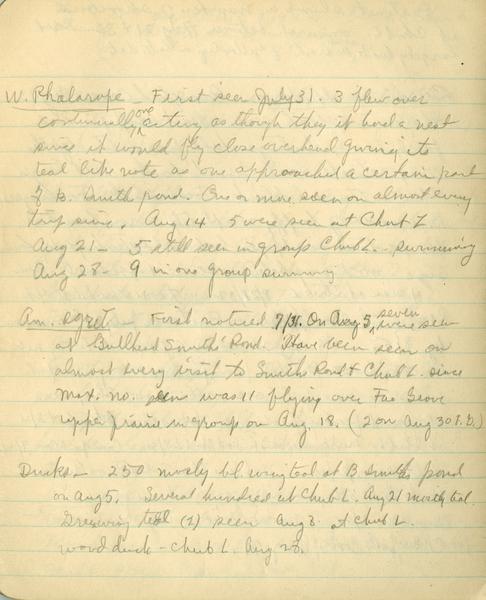 W. Phalarope - First seen July 31. 3 flew over
continually one acting as though they it had a nest
since it would fly close overhead giving its
teal like note as one approached a certain part
of B. Smith pond. One or more seen on almost every
trip since. Aug 14 5 were seen at Chub L
Aug 21 - 5 still seen in group Chub L. - swimming
Aug 28 - 9 in one group swimming
Am. egret - First noticed 7/31. On Aug 5, seven were seen
at Bullhead Smiths' Pond. Have been seen on
almost every visit to Smiths Pond & Chub L. since
Max. no. seen was 11 flying over Grove
upper prairie in group on Aug. 18. (2 on Aug 30
Ducks - 250 mostly bl. wing teal at B Smiths pond
on Aug 5. Several hundred at Chub L. Aug 21 mostly teal.
Greenwing teal (2) seen Aug 8. at Chub L.
wood duck - Chub L. Aug 28.